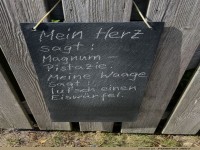 Mein Herz
sagt:
Magnum-
Pistazie.
Meine Waage
sagt:
lutsch einen
Eiswürfel.